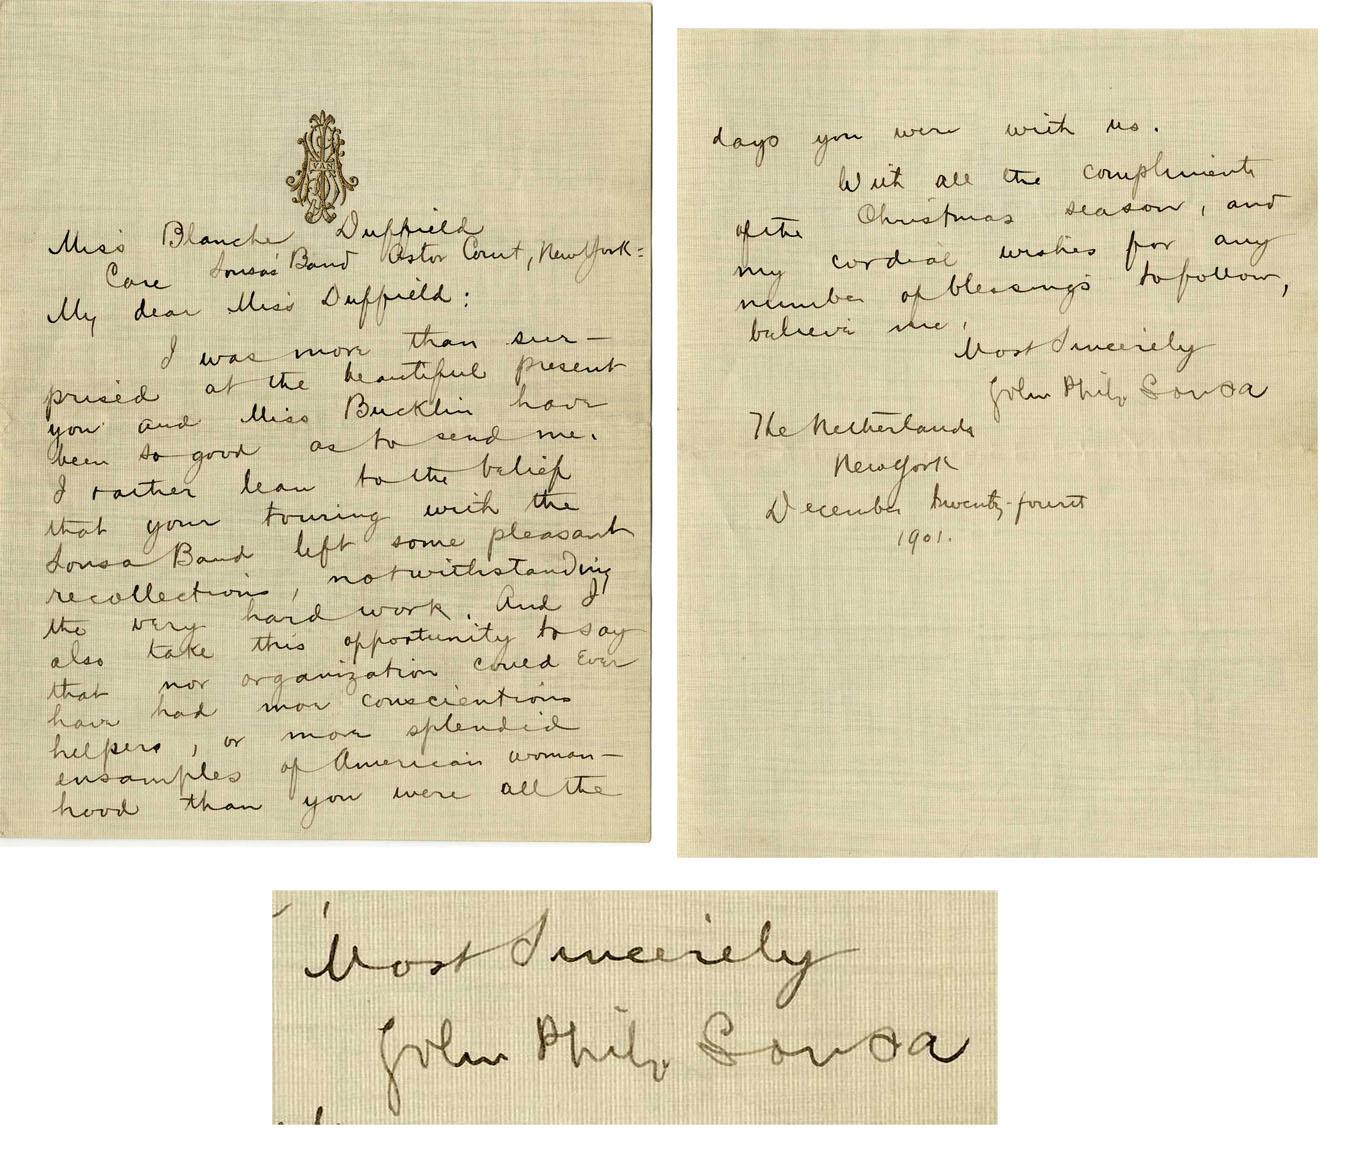 VAN
Miss Blanche Duffield
Care Sousa's Band Astor Court, New York:
My dear Miss Duffield:
I was more than sur-
prised at the beautiful present
you and Miss Bucklin have
been so good as to send me.
I rather lean to the belief
that your touring with the
Sousa Band left some pleasant
recollections, notwithstanding
the very hard work. And I
also take this opportunity to say
that nor organization could ever
have had more conscientious
helpers, or more splendid
ensamples of American woman-
hood than you were all the
days you were with us.
With all the compliments
of the Christmas season, and
my cordial wishes for any
number of blessings to follow,
believe me,
Most Sincerely
John Philip Sousa
The Netherlands
New York
December twenty-fourth
1901.
Most Sincerely
John Philip Sousa